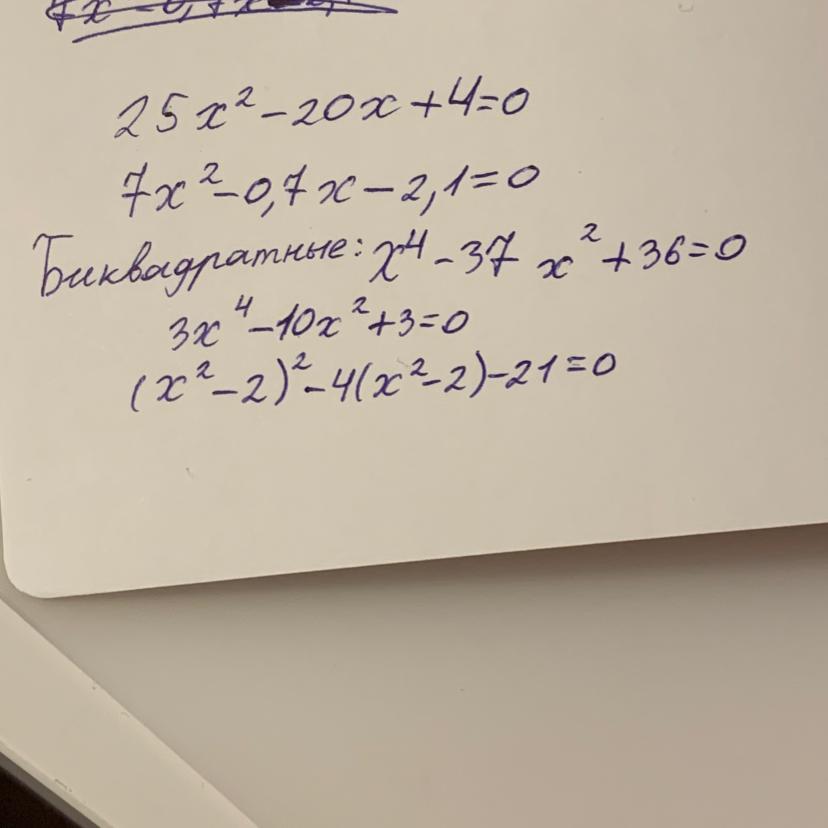 25x² - 20x + 4 = 0
7x² - 0,7x - 2,1 = 0
Биквадратные: x⁴ - 37 x² + 36 = 0
3x⁴ - 10x² + 3 = 0
(x² - 2)² - 4(x² - 2) - 21 = 0